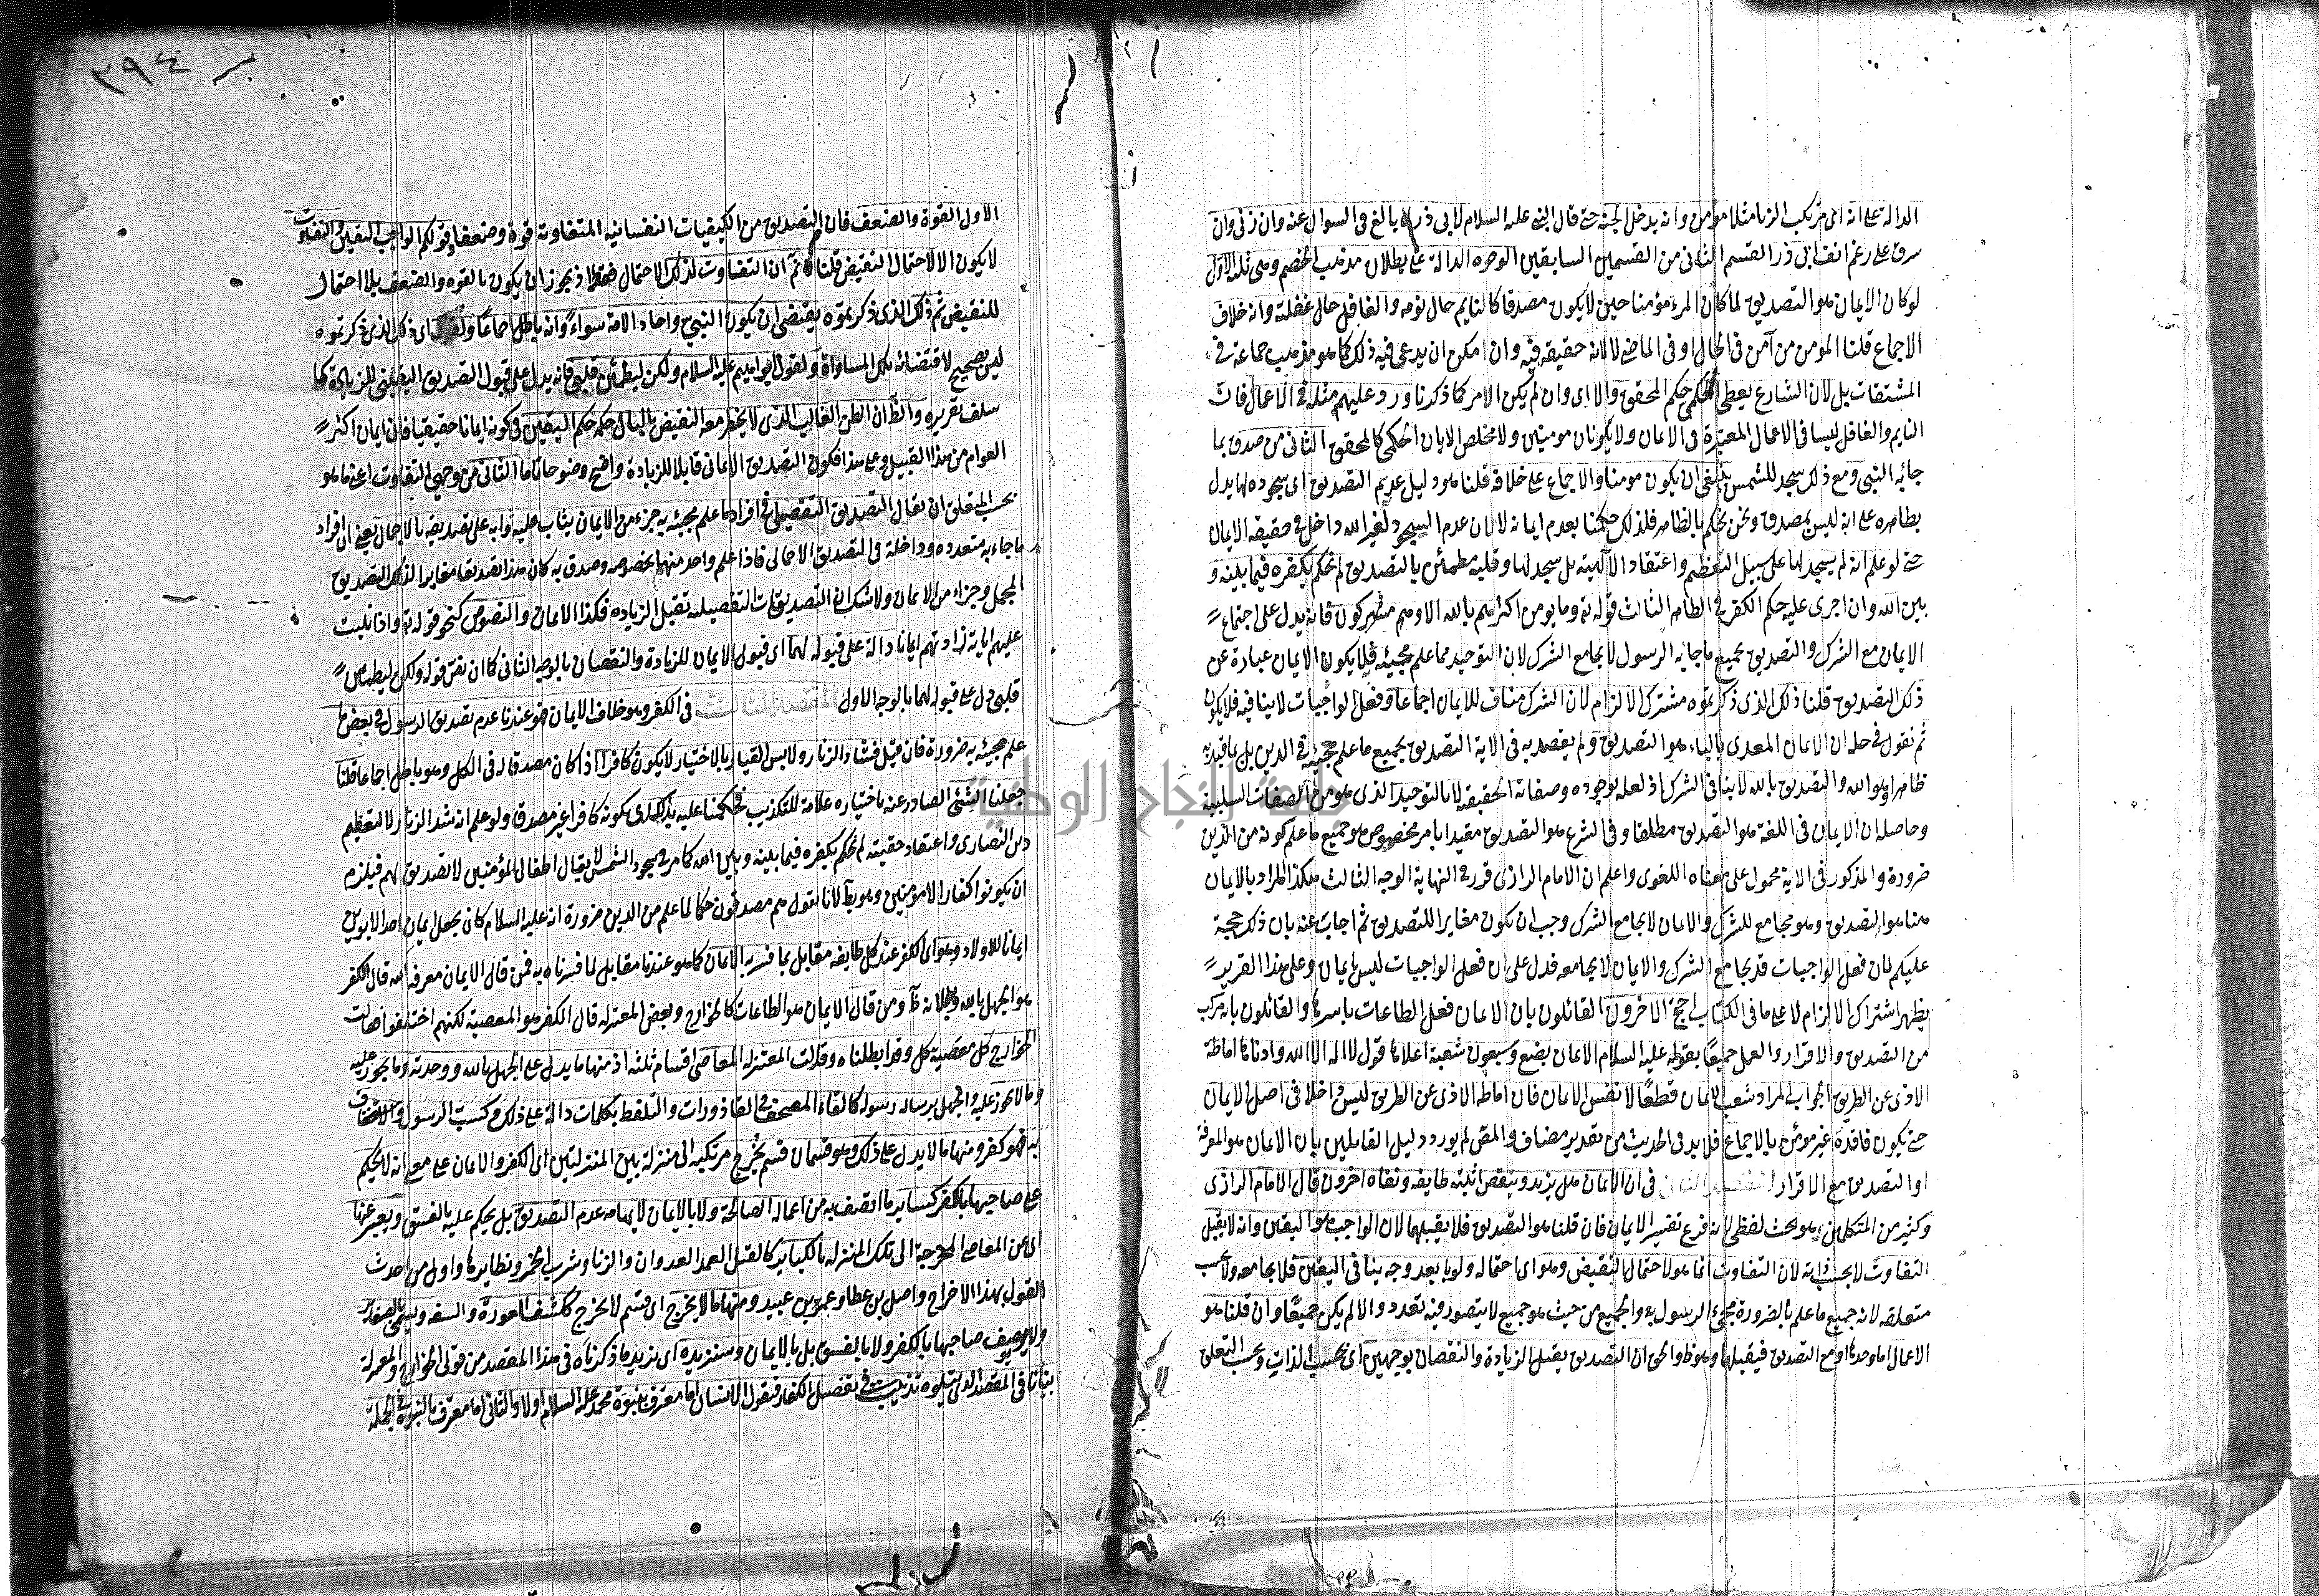 الدالة على انه اى مرتكب الزنا مثلا مومن وانه يدخل الجنة حتى قال النبى عليه السلام لابى ذر لما بالغ فى السوال عنه وان زنى وان
سرق على رغم انف ابى ذر القسم الثانى من القسمين السابقين الوجوه الدالة على بطلان مذهب الخصم وهى ثلثة الاول
لو كان الايمان هو التصديق لما كان المرء مؤمنا حين لا يكون مصدقا كالنايم حال نومه والغافل حال غفلته وانه خلاف
الاجماع قلنا المؤمن من آمن فى الحال او فى الماضى لا لانه حقيقة فيه وان امكن ان يدعى فيه ذلك كما هو مذهب جماعة فى
المشتقات بل لان الشارع يعطى الحكمى حكم المحقق والا اى وان لم يكن الامر كما ذكرنا ورد عليهم مثله فى الاعمال فان
النايم والغافل ليسا فى الاعمال المعتبرة فى الايمان ولا يكونان مومنين ولا مخلص الا بان الحكمى كالمحقق الثانى من صدق بما
جاء به النبى ومع ذلك سجد للشمس ينبغى ان يكون مومنا والاجماع على خلافه قلنا هو دليل عدم التصديق اى سجوده لها يدل
بظاهره على انه ليس بمصدق ونحن نحكم بالظاهر فلذلك حكمنا بعدم ايمانه لا لان عدم السجود لغير الله داخل فى حقيقة الايمان
حتى لو علم انه لم يسجد لها على سبيل التعظيم واعتقاد الآلهية بل سجد لها وقلبه مطمئن بالتصديق لم نحكم بكفره فيما بينه و
بين الله وان اجرى عليه حكم الكفر فى الظاهر الثالث قوله تع وما يومن اكثرهم بالله الا وهم مشركون فانه يدل على اجتماع
الايمان مع الشرك والتصديق بجميع ما جا به الرسول لا يجامع الشرك لان التوحيد مما علم مجيئه به فلا يكون الايمان عبارة عن
ذلك التصديق قلنا ذلك الذى ذكرتموه مشترك الالزام لان الشرك مناف للايمان اجماعا وفعل الواجبات لا ينافيه فلا يكون
ثم نقول فى حله ان الايمان المعدى بالباء هو التصديق ولم يقصد به فى الاية التصديق بجميع ما علم مجيئه فى الدين بل بما قيد به
ظاهرا وهو الله والتصديق بالله لا ينافى الشرك اذ لعله بوجوده وصفاته الحقيقية لا بالتوحيد الذى هو من الصفات السلبية
وحاصله ان الايمان فى اللغة هو التصديق مطلقا وفى الشرع هو التصديق مقيدا بامر مخصوص هو جميع ما علم كونه من الدين
ضرورة والمذكور فى الاية محمول على معناه اللغوى واعلم ان الامام الرازى قرر فى النهاية الوجه الثالث هكذا المراد بالايمان
هنا هو التصديق وهو مجامع للشرك والايمان لا يجامع الشرك وجب ان يكون مغايرا للتصديق ثم اجاب عنه بان ذلك حجة
عليكم لان فعل الواجبات قد يجامع الشرك والايمان لا يجامعه فدل على ان فعل الواجبات ليس بايمان وعلى هذا التقرير
يظهر اشتراك الالزام لا على ما فى الكتاب احتج الاخرون القائلون بان الايمان فعل الطاعات باسرها والقائلون بانه مركب
من التصديق والاقرار والعمل جميعا بقوله عليه السلام الايمان بضع وسبعون شعبة اعلاها قول لا اله الا الله وادناها اماطة
الاذى عن الطريق الجواب المراد شعب الايمان قطعا لا نفس الايمان فان اماطة الاذى عن الطريق ليس داخلا فى اصل الايمان
حتى يكون فاقده غير مؤمن بالاجماع فلا بد فى الحديث من تقدير مضاف والمص لم يورد دليل القايلين بان الايمان هو المعرفة
او التصديق مع الاقرار فى ان الايمان هل يزيد وينقص اثبته طايفة ونفاه اخرون قال الامام الرازى
وكثير من المتكلمين هو بحث لفظى لانه فرع تفسير الايمان فان قلنا هو التصديق فلا يقبلهما لان الواجب هو اليقين وانه لا يقبل
التفاوت لا بحسب ذاته لان التفاوت انما هو لاحتمال النقيض وهو اى احتماله ولو بابعد وجه ينافى اليقين فلا يجامعه ولا بحسب
متعلقه لانه جميع ما علم بالضرورة مجئ الرسول به والجميع من حيث هو جميع لا يتصور فيه تعدد والا لم يكن جميعا وان قلنا هو
الاعمال اما وحدها او مع التصديق فيقبلهما وهو ظ والحق ان التصديق يقبل الزيادة والنقصان بوجهين اى بحسب الذات وبحسب التعلق
٣٩٤
الاول القوة والضعف فان التصديق من الكيفيات النفسانية المتفاوتة قوة وضعفا وقولكم الواجب اليقين والتفاوت
لا يكون الا لاحتمال النقيض قلنا لا نم ان التفاوت لذلك الاحتمال فقط اذ يجوز ان يكون بالقوة والضعف بلا احتمال
للنقيض ثم ذلك الذى ذكرتموه يقتضى ان يكون النبى واحاد الامة سواء وانه باطل اجماعا ذلك الذى ذكرتموه
ليس بصحيح لاقتضائه تلك المساواة ولقول ابراهيم عليه السلام ولكن ليطمئن قلبى فانه يدل على قبول التصديق اليقينى للزيادة كما
سلف تقريره والظ ان الظن الغالب الذى لا يخطر معه النقيض بالبال حكمه حكم اليقين فى كونه ايمانا حقيقيا فان ايمان اكثر
العوام من هذا القبيل وعلى هذا فكون التصديق الايمانى قابلا للزيادة واضح وضوحا تاما الثانى من وجهى التفاوت اعنى ما هو
بحسب المتعلق ان يقال التصديق التفصيلى فى افراد ما علم مجيئه به جزء من الايمان يثاب عليه ثوابه على تصديقه بالاجمال يعنى ان افراد
ما جاء به متعددة وداخلة فى التصديق الاجمالى فاذا علم واحد منها بخصوصه وصدق به كان هذا تصديقا مغايرا لذلك التصديق
المجمل وجزاء من الايمان ولا شك ان التصديقات التفصيلية تقبل الزيادة فكذا الايمان والنصوص كنحو قوله تع واذا تليت
عليهم آياته زادتهم ايمانا دالة على قبوله لهما اى قبول الايمان للزيادة والنقصان بالوجه الثانى كما ان نص قوله ولكن ليطمئن
قلبى دل على قبوله لهما بالوجه الاول المقصد الثالث فى الكفر وهو خلاف الايمان فهو عندنا عدم تصديق الرسول فى بعض ما
علم مجيئه به ضرورة فان قيل فشاد الزنار ولابس الغيار بالاختيار لا يكون كافرا اذا كان مصدقا له فى الكل وهو باطل اجماعا قلنا
جعلنا الشئ الصادر عنه باختياره علامة للتكذيب فحكمنا عليه بذلك اى بكونه كافرا غير مصدق ولو علم انه شد الزنار لا لتعظيم
دين النصارى واعتقاد حقيته لم نحكم بكفره فيما بينه وبين الله كما مر فى سجود الشمس لا يقال اطفال المؤمنين لا تصديق لهم فيلزم
ان يكونوا كفارا لا مؤمنين وهو بط لانا نقول هم مصدقون حكما لما علم من الدين ضرورة انه عليه السلام كان يجعل ايمان احد الابوين
ايمانا للاولاد وهو اى الكفر عند كل طايفة مقابل بما فسر به الايمان كما هو عندنا مقابل لما فسرناه به فمن قال الايمان معرفة الله قال الكفر
هو الجهل بالله وبطلانه ظ ومن قال الايمان هو الطاعات كالخوارج وبعض المعتزلة قال الكفر هو المعصية لكنهم اختلفوا فقالت
الخوارج كل معصية كفر وقد ابطلناه وقالت المعتزلة المعاصى اقسام ثلثة اذ منها ما يدل على الجهل بالله ووحدته وما يجوز عليه
وما لا يجوز عليه والجهل برسالة رسوله كالقاء المصحف فى القاذورات والتلفظ بكلمات دالة على ذلك كسب الرسول والاستخفاف
به فهو كفر ومنها ما لا يدل على ذلك وهو قسمان قسم يخرج مرتكبه الى منزلة بين المنزلتين اى الكفر والايمان على معنى انه لا يحكم
على صاحبها بالكفر كساير ما اتصف به من اعماله الصالحة ولا بالايمان لايهامه عدم التصديق بل يحكم عليه بالفسق ويعبر عنها
اى عن المعاصى المخرجة الى تلك المنزلة بالكباير كالقتل العمد العدوان والزنا وشرب الخمر ونظايرها واول من احدث
القول بهذا الاخراج واصل بن عطا وعمرو بن عبيد ومنها ما لا يخرج اى قسم لا يخرج ككشف العورة والسفه ويسمى بالصغاير
ولا يوصف صاحبها بالكفر ولا بالفسق بل بالايمان وسنزيده اى نزيد ما ذكرناه فى هذا المقصد من قولى الخوارج والمعتزلة
بيانا فى المقصد الذى يتلوه تذنيب فى تفصيل الكفار فنقول الانسان اما معترف بنبوة محمد عليه السلام اولا والثانى اما معترف بالنبوة فى الجملة
جامعة النجاح الوطنية